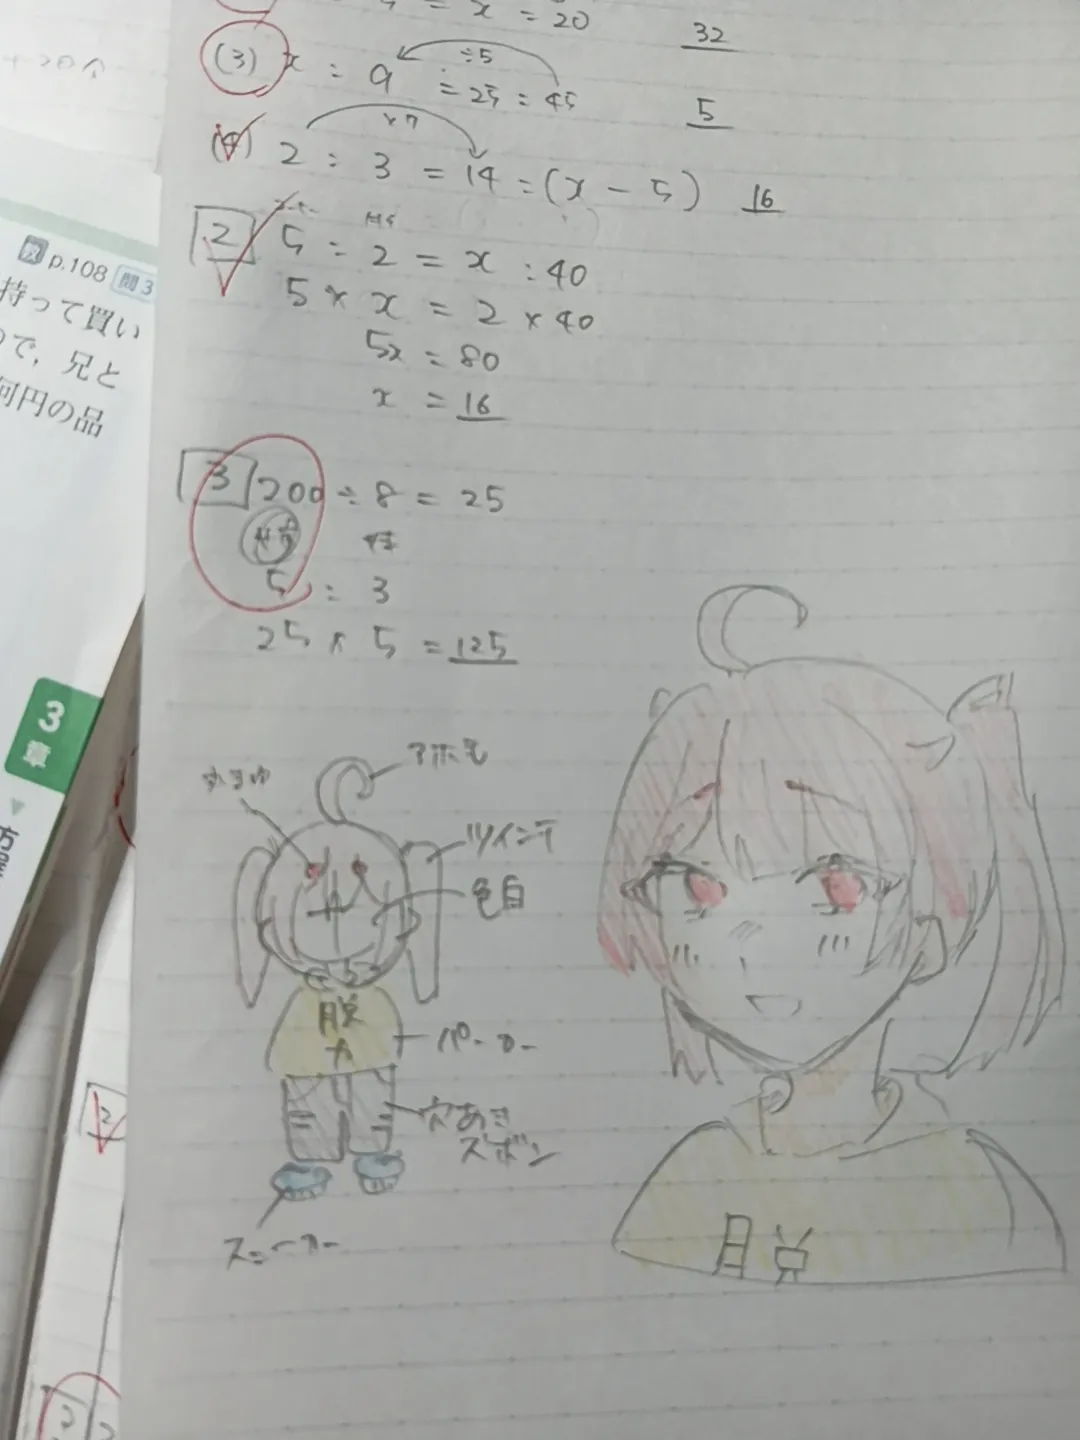 = x = 20
32
(3) x : 9 = 25 : 45
÷5
5
×7
(4) 2 : 3 = 14 : (x - 5) 16
2 5 : 2 = x : 40
5 × x = 2 × 40
5x = 80
x = 16
3 200 ÷ 8 = 25
5 : 3
25 × 5 = 125
アホ毛
ツインテ
色白
脱
力
パーカー
穴あき
ズボン
スニーカー
脱
p.108 問3
持って買い
で，兄と
何円の品
3
章
2